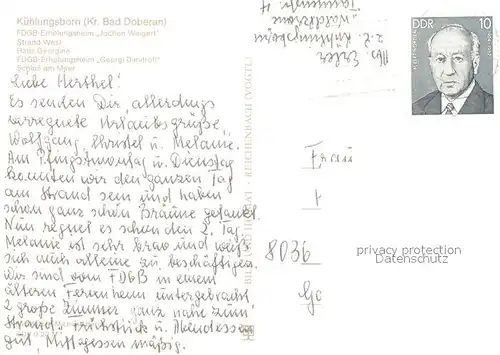 Kühlungsborn (Kr. Bad Doberan)
FDGB-Erholungsheim „Jochen Weigert"
Strand West
Haus Georgine
FDGB-Erholungsheim „Georgi Dimitroff"
Schloß am Meer
Liebe Herthel!
Es senden Dir, allerdings
verregnete Urlaubsgrüße,
Wolfgang, Christel u. Melanie.
Am Pfingstmontag u. Dienstag
konnten wir den ganzen Tag
am Strand sein und haben
schon ganz schön Bräune getankt.
Nun regnet es schon den 2. Tag.
Melanie ist sehr brav und weiß
sich auch alleine zu beschäftigen.
Wir sind vom FDGB in einem
älteren Ferienheim untergebracht.
2 große Zimmer ganz nahe zum
Strand. Frühstück u. Abendessen
gut, Mittagessen mäßig.
REICHENBACH (VOGTL)
Abs. Erler
z.Z. Kühlungsborn
DDR 10
Frau
8036
privacy protection
Datenschutz